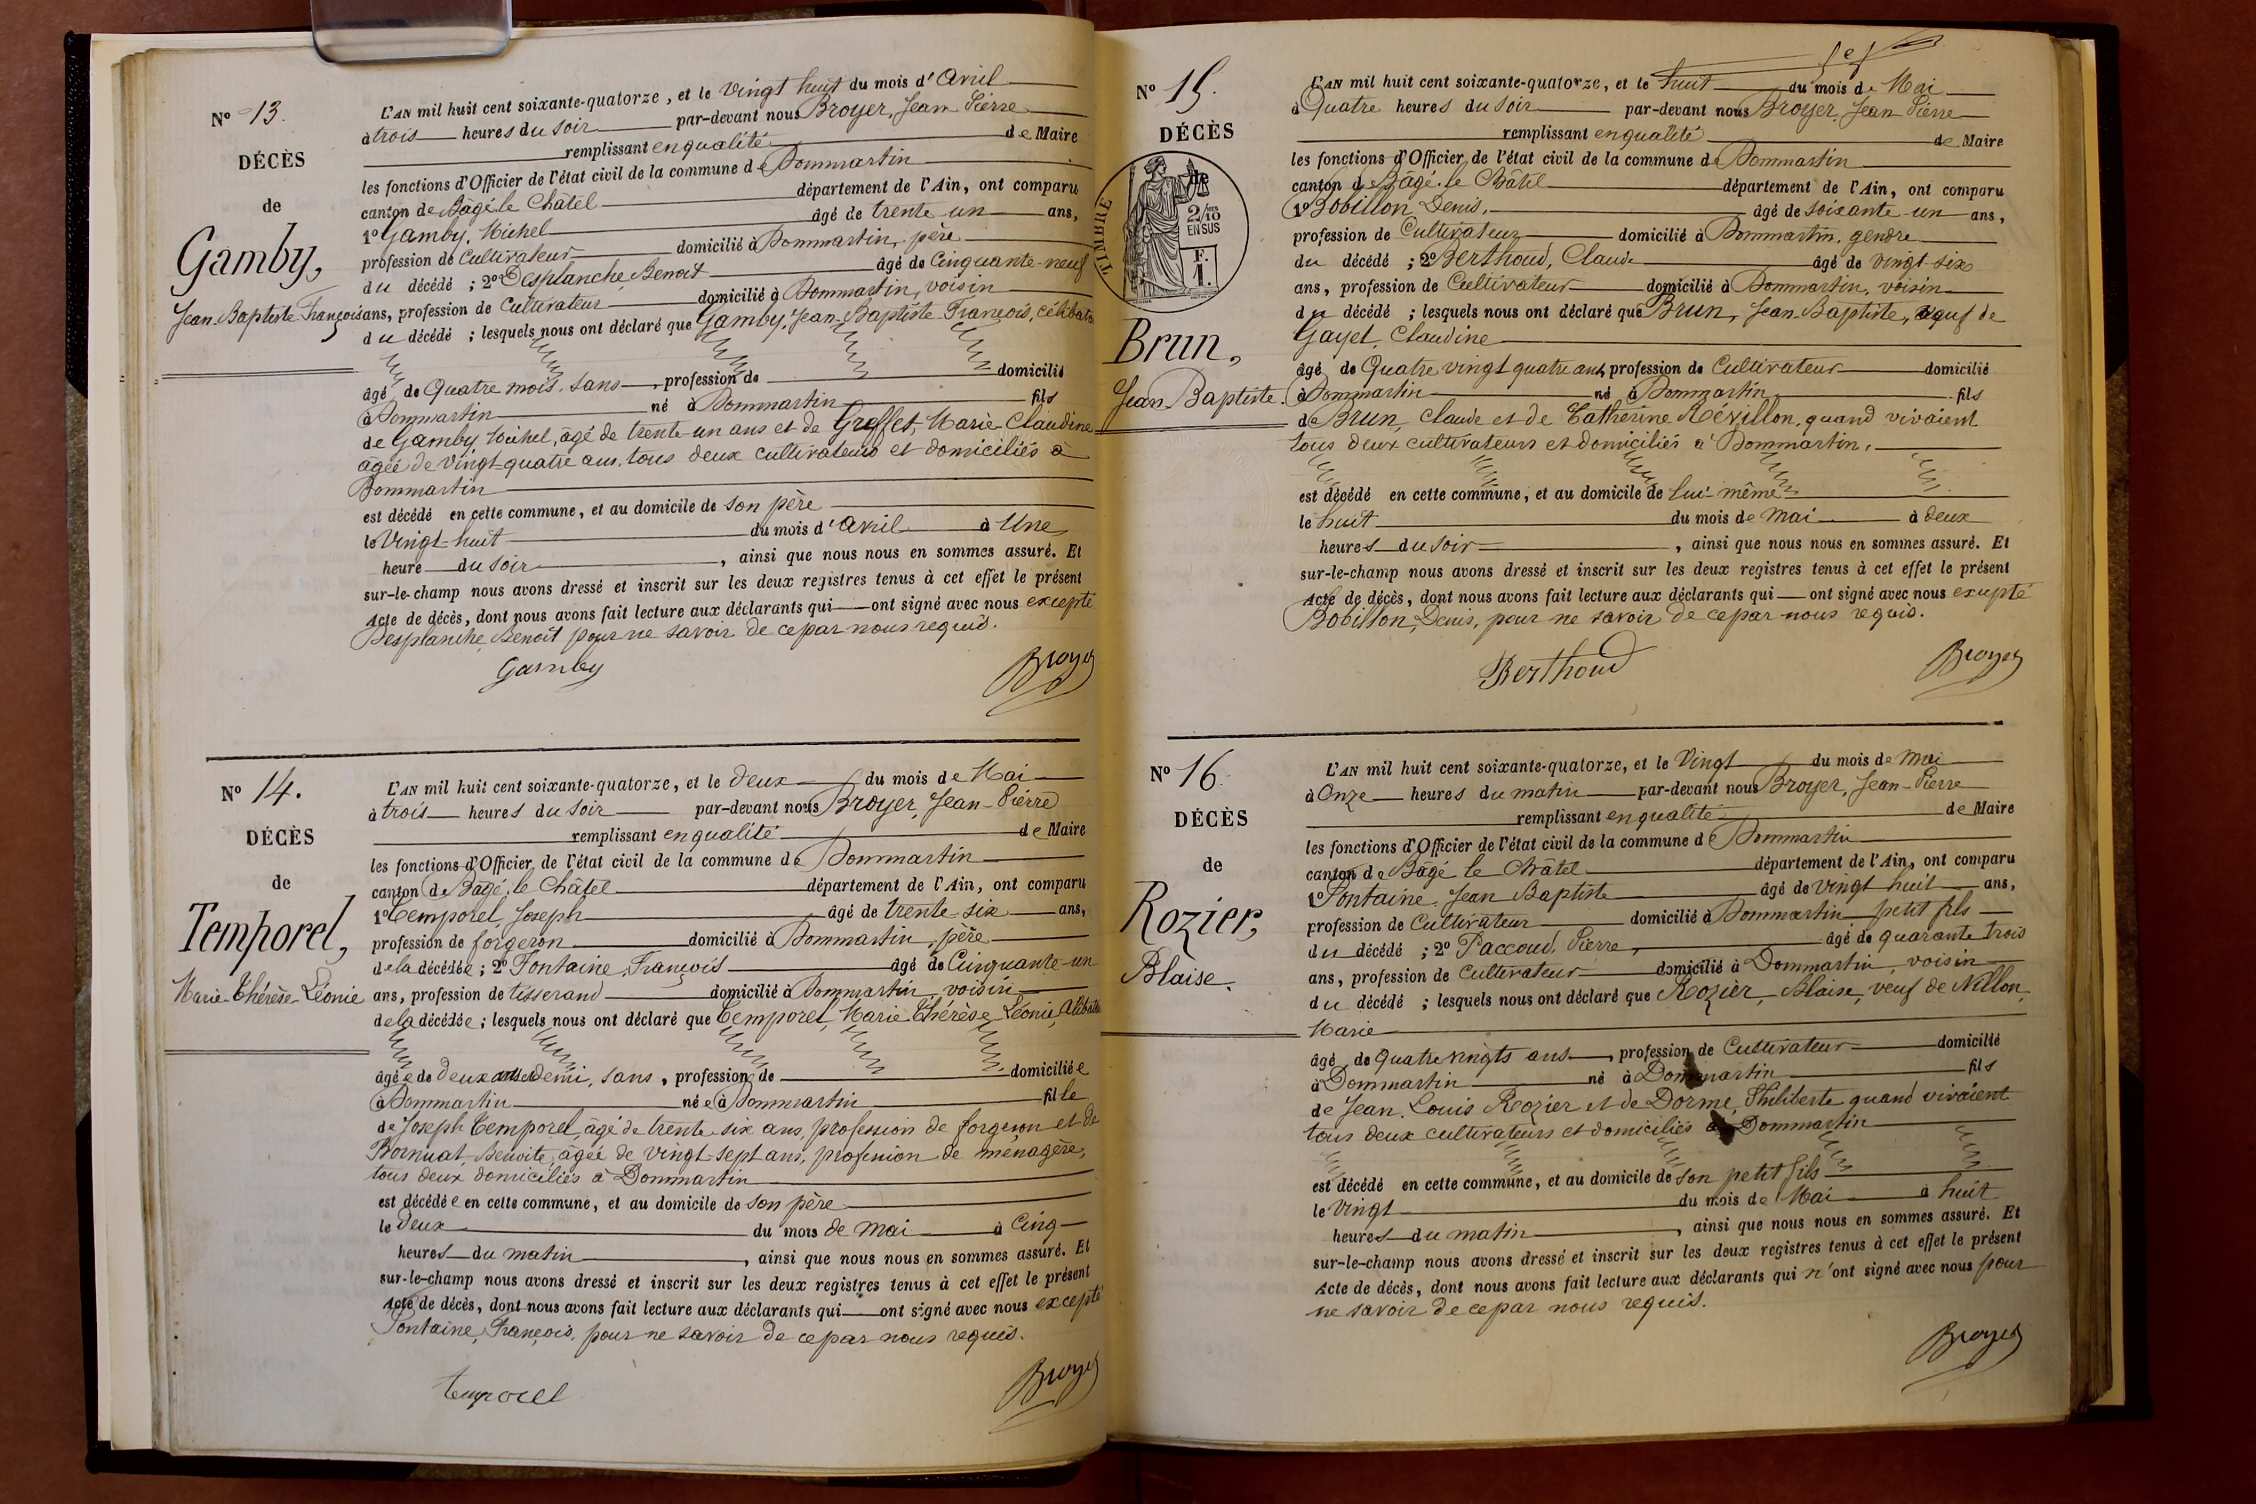 Nº 13.
DÉCÈS
de
Gamby,
Jean Baptiste François
L'AN mil huit cent soixante-quatorze, et le vingt huit du mois d'Avril
à trois heures du soir par-devant nous Broyer, Jean Pierre
remplissant en qualité de Maire
les fonctions d'Officier de l'état civil de la commune de Dommartin
canton de Bâgé le Châtel département de l'Ain, ont comparu
1º Gamby, Michel âgé de trente un ans,
profession de Cultivateur domicilié à Dommartin, père
du décédé ; 2º Desplanche, Benoit âgé de Cinquante neuf
ans, profession de Cultivateur domicilié à Dommartin, voisin
du décédé ; lesquels nous ont déclaré que Gamby, Jean Baptiste François,
âgé de Quatre mois, sans, profession de domicilié
à Dommartin né à Dommartin fils
de Gamby Michel, âgé de trente un ans et de Greffet, Marie Claudine
âgée de vingt quatre ans, tous deux cultivateurs et domiciliés à
Dommartin
est décédé en cette commune, et au domicile de son père
le Vingt huit du mois d'Avril à Une
heure du soir, ainsi que nous nous en sommes assuré. Et
sur-le-champ nous avons dressé et inscrit sur les deux registres tenus à cet effet le présent
Acte de décès, dont nous avons fait lecture aux déclarants qui ont signé avec nous excepté
Desplanche, Benoit pour ne savoir de ce par nous requis.
Gamby Broyer
Nº 14.
DÉCÈS
de
Temporel,
Marie Thérèse Léonie
L'AN mil huit cent soixante-quatorze, et le deux du mois de Mai
à trois heures du soir par-devant nous Broyer, Jean-Pierre
remplissant en qualité de Maire
les fonctions d'Officier de l'état civil de la commune de Dommartin
canton de Bâgé le Châtel département de l'Ain, ont comparu
1º Temporel, Joseph âgé de trente six ans,
profession de forgeron domicilié à Dommartin, père
de la décédée ; 2º Fontaine, François âgé de Cinquante un
ans, profession de tisserand domicilié à Dommartin, voisin
de la décédée ; lesquels nous ont déclaré que Temporel, Marie Thérèse Léonie,
âgée de deux ans et demi, sans, profession de domiciliée
à Dommartin née à Dommartin fille
de Joseph Temporel, âgé de trente six ans, profession de forgeron et de
Bornuat, Benoite, âgée de vingt sept ans, profession de ménagère,
tous deux domiciliés à Dommartin
est décédée en cette commune, et au domicile de son père
le deux du mois de mai à Cinq
heures du matin, ainsi que nous nous en sommes assuré. Et
sur-le-champ nous avons dressé et inscrit sur les deux registres tenus à cet effet le présent
Acte de décès, dont nous avons fait lecture aux déclarants qui ont signé avec nous excepté
Fontaine, François, pour ne savoir de ce par nous requis.
temporel Broyer
Nº 15.
DÉCÈS
de
TIMBRE
2/10
EN SUS
F.
1.
Brun,
Jean Baptiste.
L'AN mil huit cent soixante-quatorze, et le huit du mois de Mai
à Quatre heures du soir par-devant nous Broyer, Jean Pierre
remplissant en qualité de Maire
les fonctions d'Officier de l'état civil de la commune de Dommartin
canton de Bâgé le Châtel département de l'Ain, ont comparu
1º Bobillon, Denis, âgé de soixante un ans,
profession de Cultivateur domicilié à Dommartin, gendre
du décédé ; 2º Berthoud, Claude âgé de vingt six
ans, profession de Cultivateur domicilié à Dommartin, voisin
du décédé ; lesquels nous ont déclaré que Brun, Jean Baptiste, veuf de
Gayet, Claudine
âgé de Quatre vingt quatre ans, profession de Cultivateur domicilié
à Dommartin né à Dommartin fils
de Brun, Claude et de Catherine Révillon, quand vivaient
tous deux cultivateurs et domiciliés à Dommartin,
est décédé en cette commune, et au domicile de lui même
le huit du mois de mai à deux
heures du soir, ainsi que nous nous en sommes assuré. Et
sur-le-champ nous avons dressé et inscrit sur les deux registres tenus à cet effet le présent
Acte de décès, dont nous avons fait lecture aux déclarants qui ont signé avec nous excepté
Bobillon, Denis, pour ne savoir de ce par nous requis.
Berthoud Broyer
Nº 16.
DÉCÈS
de
Rozier,
Blaise.
L'AN mil huit cent soixante-quatorze, et le Vingt du mois de mai
à Onze heures du matin par-devant nous Broyer, Jean-Pierre
remplissant en qualité de Maire
les fonctions d'Officier de l'état civil de la commune de Dommartin
canton de Bâgé le Châtel département de l'Ain, ont comparu
1º Fontaine, Jean Baptiste âgé de vingt huit ans,
profession de Cultivateur domicilié à Dommartin petit fils
du décédé ; 2º Paccoud, Pierre, âgé de quarante trois
ans, profession de Cultivateur domicilié à Dommartin, voisin
du décédé ; lesquels nous ont déclaré que Rozier, Blaise, veuf de Nillon,
Marie
âgé de Quatre vingts ans, profession de Cultivateur domicilié
à Dommartin né à Dommartin fils
de Jean Louis Rozier et de Dorme, Philiberte quand vivaient
tous deux cultivateurs et domiciliés à Dommartin
est décédé en cette commune, et au domicile de son petit fils
le Vingt du mois de Mai à huit
heures du matin, ainsi que nous nous en sommes assuré. Et
sur-le-champ nous avons dressé et inscrit sur les deux registres tenus à cet effet le présent
Acte de décès, dont nous avons fait lecture aux déclarants qui n'ont signé avec nous pour
ne savoir de ce par nous requis.
Broyer